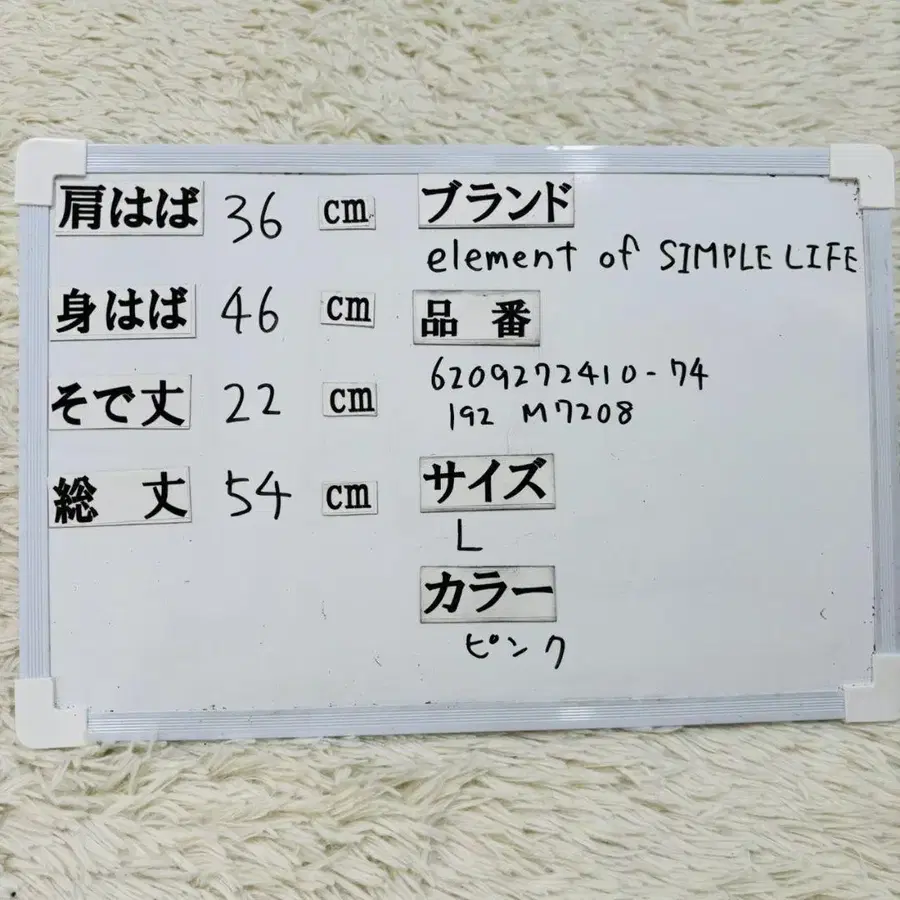 肩はば 36 cm
身はば 46 cm
そで丈 22 cm
総丈 54 cm
ブランド
element of SIMPLE LIFE
品番
6209272410-74
192 M7208
サイズ
L
カラー
ピンク